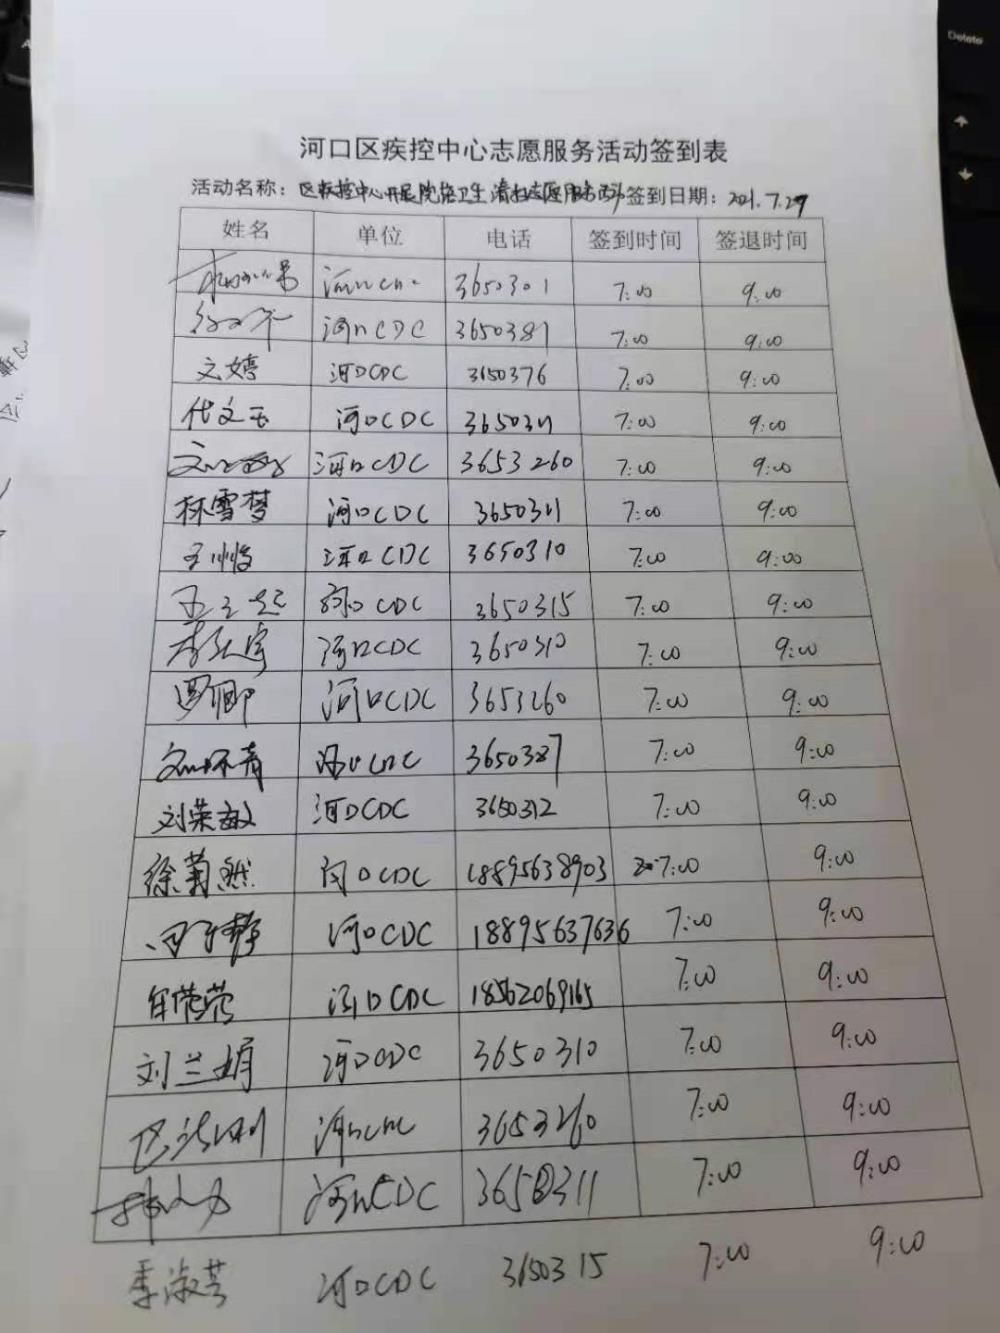 Delete
河口区疾控中心志愿服务活动签到表
活动名称：区疾控中心开展院落卫生清扫志愿服务活动 签到日期：2021.7.29
姓名 单位 电话 签到时间 签退时间
3650301 7:00 9:00
河口CDC 3650381 7:00 9:00
文婷 河口CDC 3650376 7:00 9:00
代文玉 河口CDC 3650311 7:00 9:00
河口CDC 3653260 7:00 9:00
林雪梦 河口CDC 3650311 7:00 9:00
河口CDC 3650310 7:00 9:00
河口CDC 3650315 7:00 9:00
河口CDC 3650310 7:00 9:00
河口CDC 3653260 7:00 9:00
河口CDC 3650387 7:00 9:00
刘荣敏 河口CDC 3650312 7:00 9:00
徐菊然 河口CDC 18895638903 7:00 9:00
河口CDC 18895637636 7:00 9:00
河口CDC 18562069165 7:00 9:00
刘兰娟 河口CDC 3650310 7:00 9:00
3653260 7:00 9:00
河口CDC 3650311 7:00 9:00
李淑芳 河口CDC 3650315 7:00 9:00